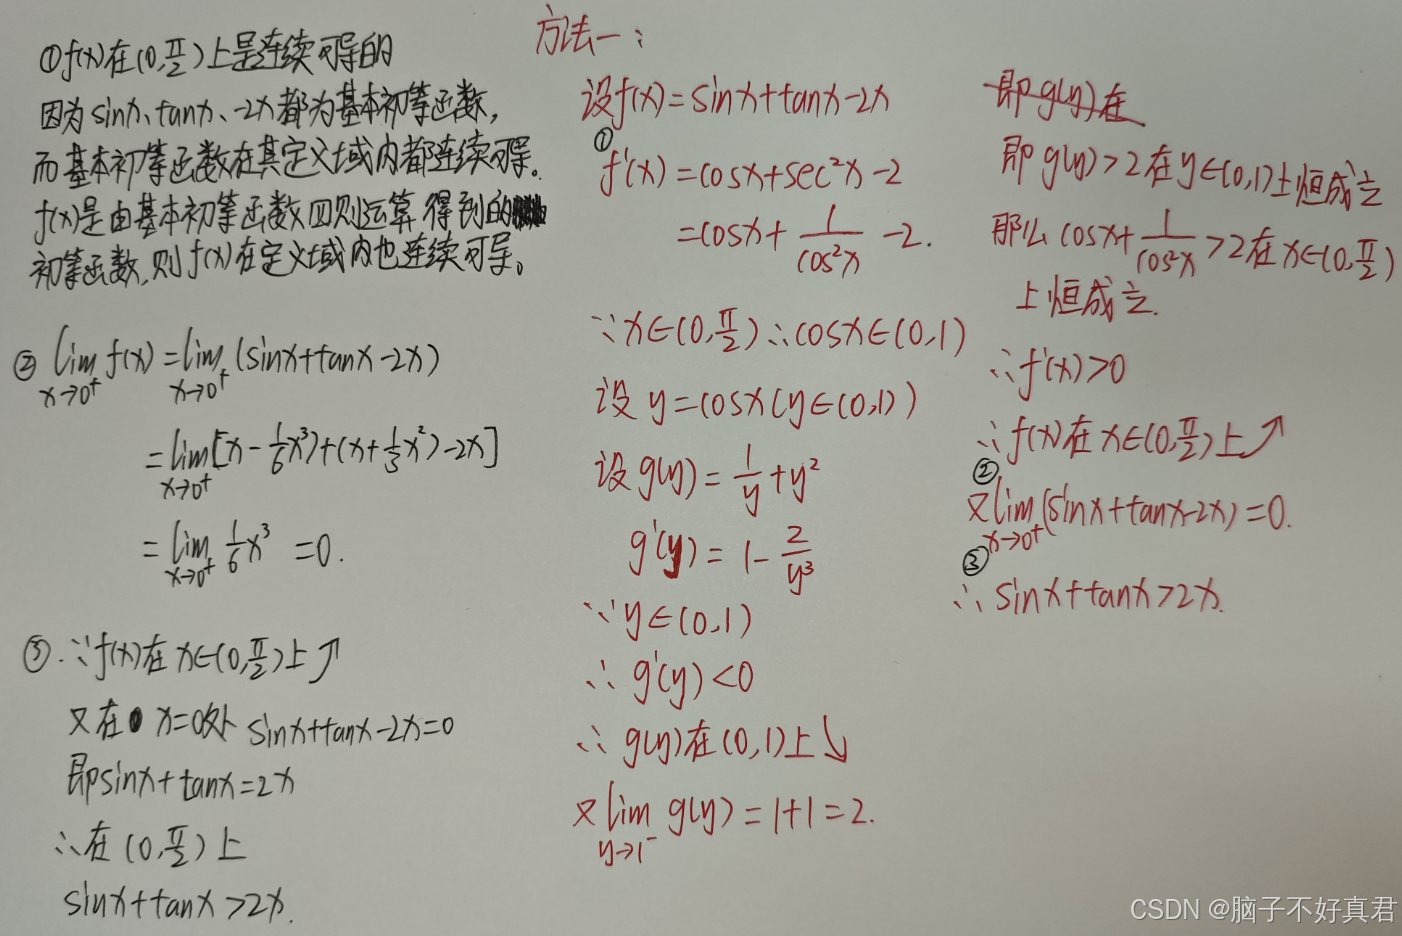 ①f(x)在(0,π/2)上是连续可导的
因为sinx、tanx、-2x都为基本初等函数,
而基本初等函数在其定义域内都连续可导.
f(x)是由基本初等函数四则运算得到的
初等函数,则f(x)在定义域内也连续可导。
② lim x→0⁺ f(x) = lim x→0⁺ (sinx+tanx-2x)
= lim x→0⁺ [x-1/6x³)+(x+1/3x²)-2x]
= lim x→0⁺ 1/6x³ =0.
③.∵f(x)在x∈(0,π/2)上↗
又在x=0处 sinx+tanx-2x=0
即sinx+tanx=2x
∴在(0,π/2)上
sinx+tanx>2x.
方法一:
设f(x)=sinx+tanx-2x
①
f'(x)=cosx+sec²x-2
=cosx+1/cos²x-2.
∵x∈(0,π/2)∴cosx∈(0,1)
设y=cosx(y∈(0,1))
设g(y)=1/y+y²
g'(y)=1-2/y³
∵y∈(0,1)
∴g'(y)<0
∴g(y)在(0,1)上↘
又lim y→1⁻ g(y)=1+1=2.
即g(y)在
即g(y)>2在y∈(0,1)上恒成立
那么cosx+1/cos²x>2在x∈(0,π/2)
上恒成立.
∴f'(x)>0
∴f(x)在x∈(0,π/2)上↗
②
又lim x→0⁺ (sinx+tanx-2x)=0.
③
∴sinx+tanx>2x.
CSDN @脑子不好真君